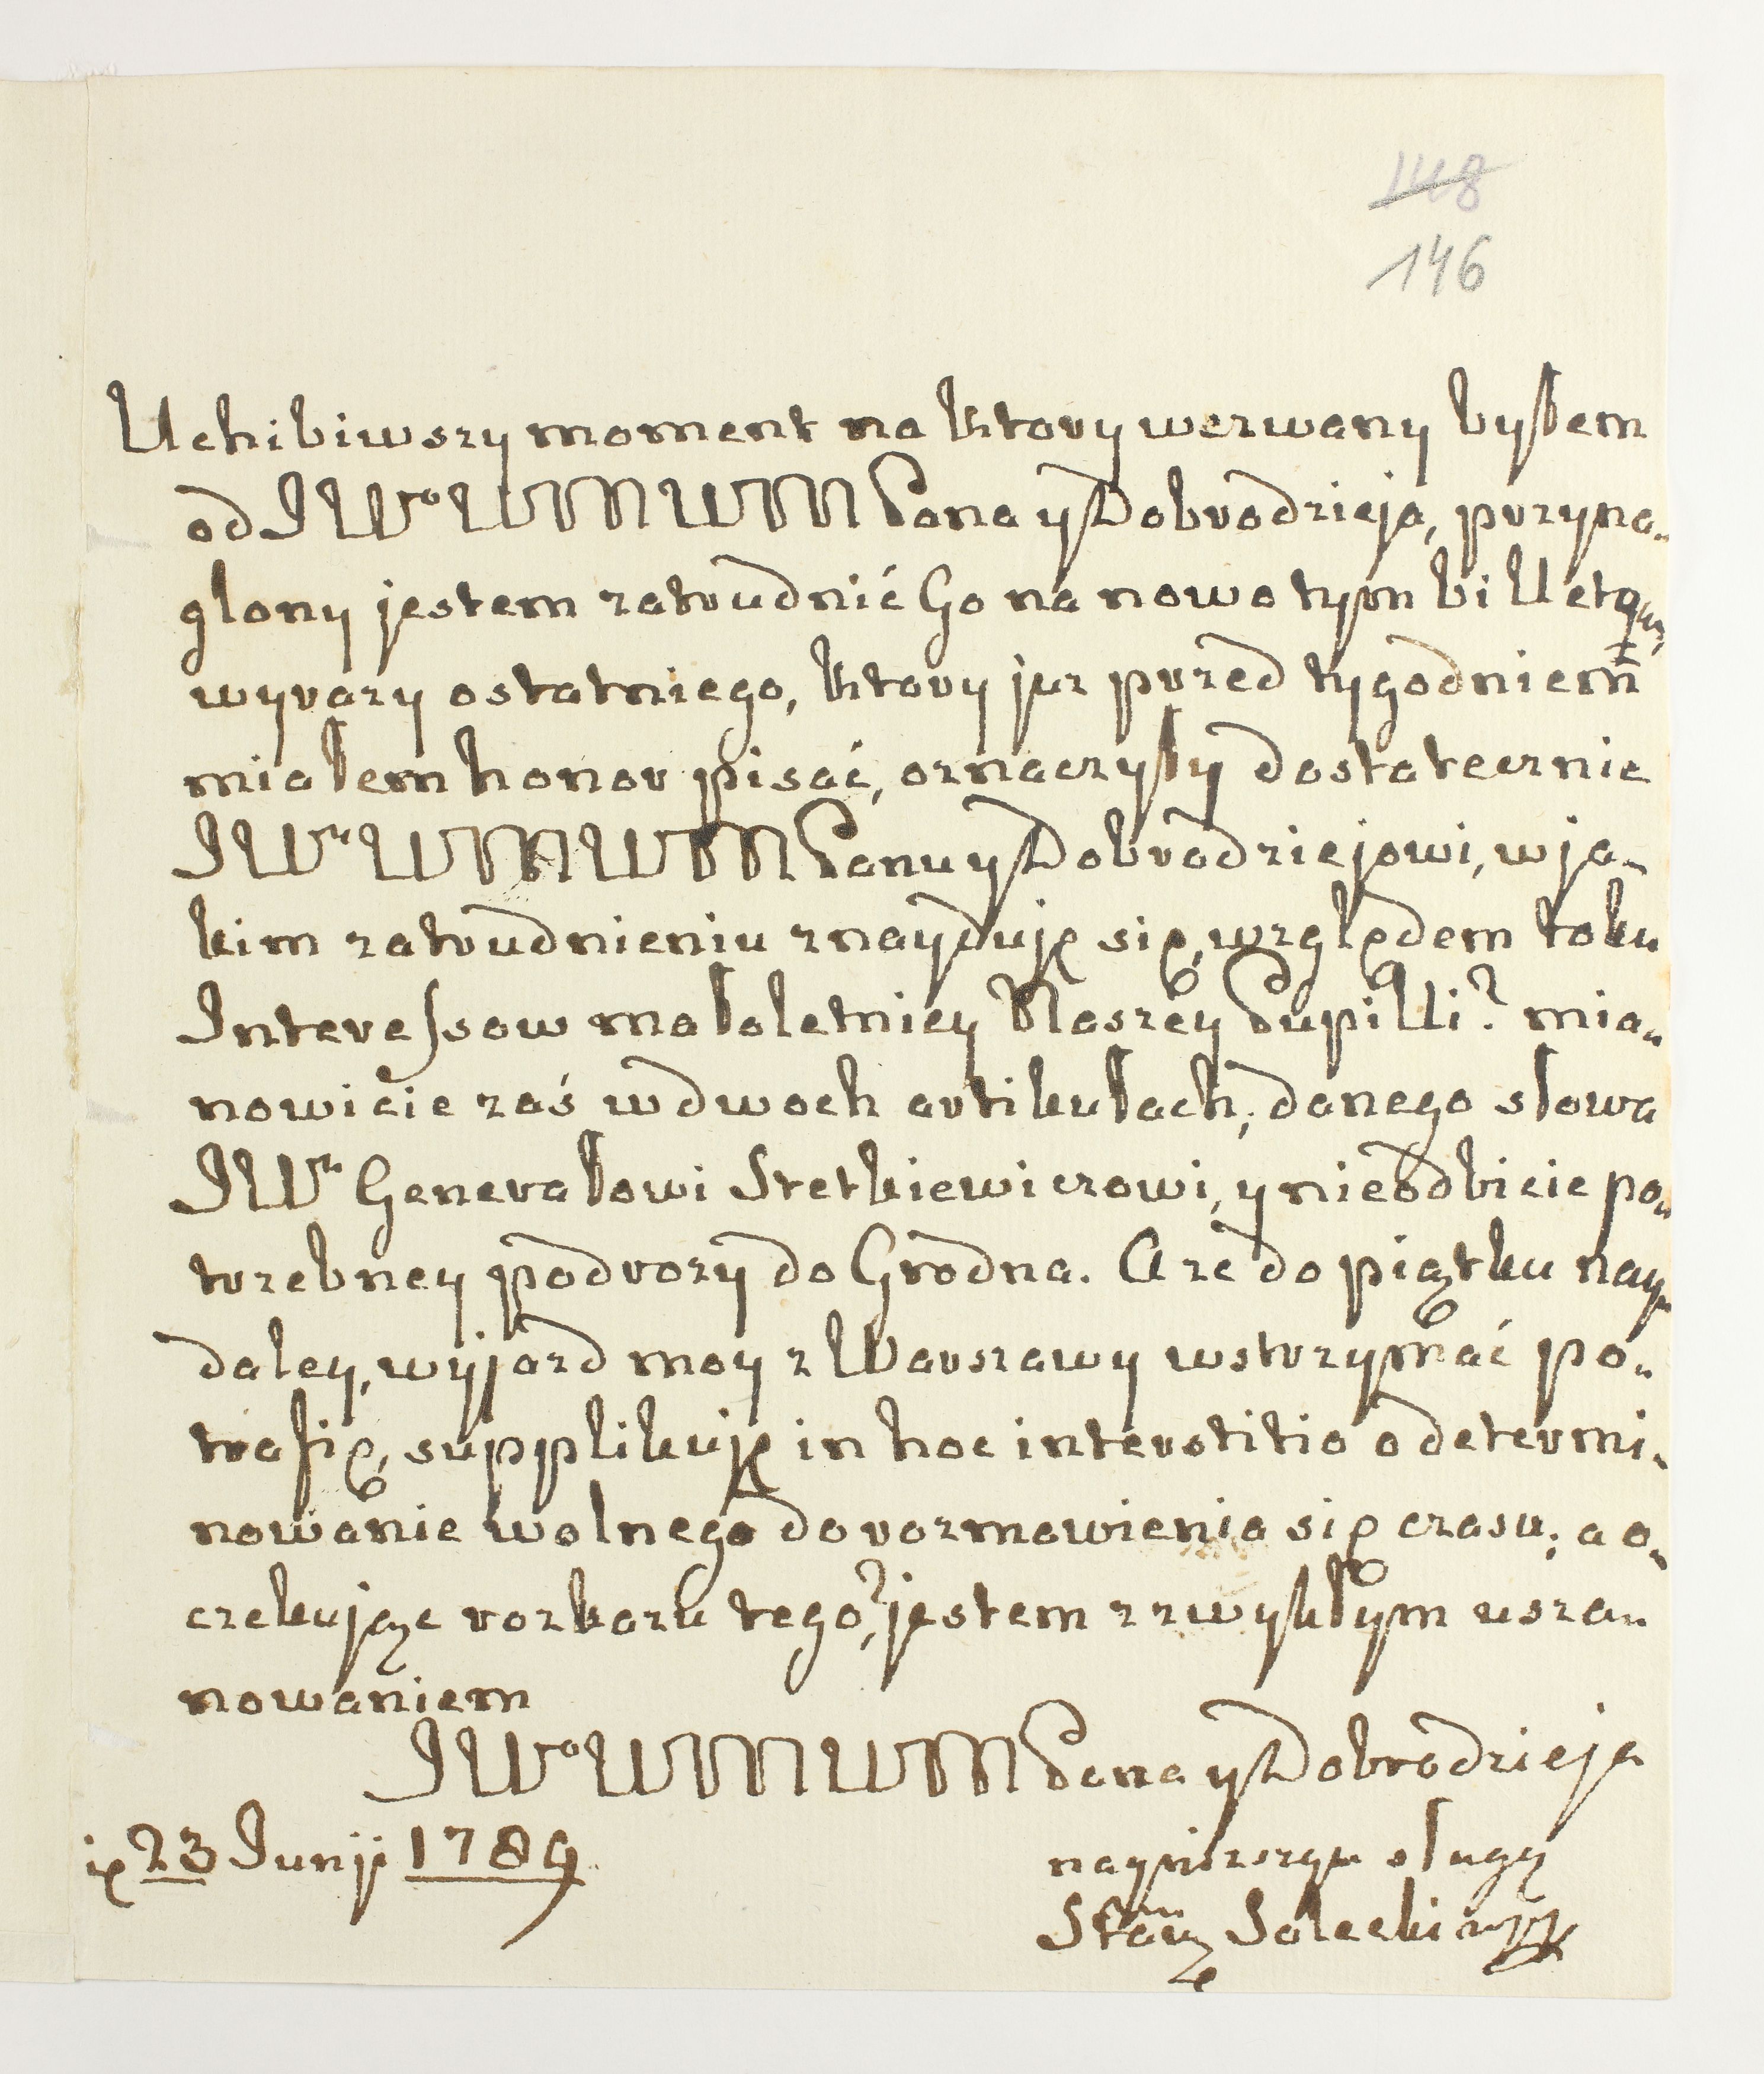 148
146
Uchibiwszy moment na ktory wezwany byłem
od JWº WMM WM Pana y Dobrodzieja, przyna-
glony jestem zatrudnić Go na nowo tym billetem,
wyrazy ostatniego, ktory juz przed tygodniem
miałem honor pisać, oznaczyły dostatecznie
JWu WMM WM Panu y Dobrodziejowi, w ja-
kim zatrudnieniu znayduję się, względem toku
Interessow małoletniey Naszey Pupilli? mia-
nowicie zaś w dwoch artikułach, danego słowa
JWu Generałowi Stetkiewiczowi, y nieodbicie po-
trzebney podrozy do Grodna. A ze do piątku nay-
daley, wyjazd moy z Warszawy wstrzymać po-
trafię, supplikuję in hoc interstitio o determi-
nowanie wolnego do rozmowienia się czasu; a o-
czekując rozkazu tego?, jestem z zwykłym usza-
nowaniem
JWº WMM WM Pana y Dobrodzieja
23 Junij 1789
nayniższym sługą
Solecki